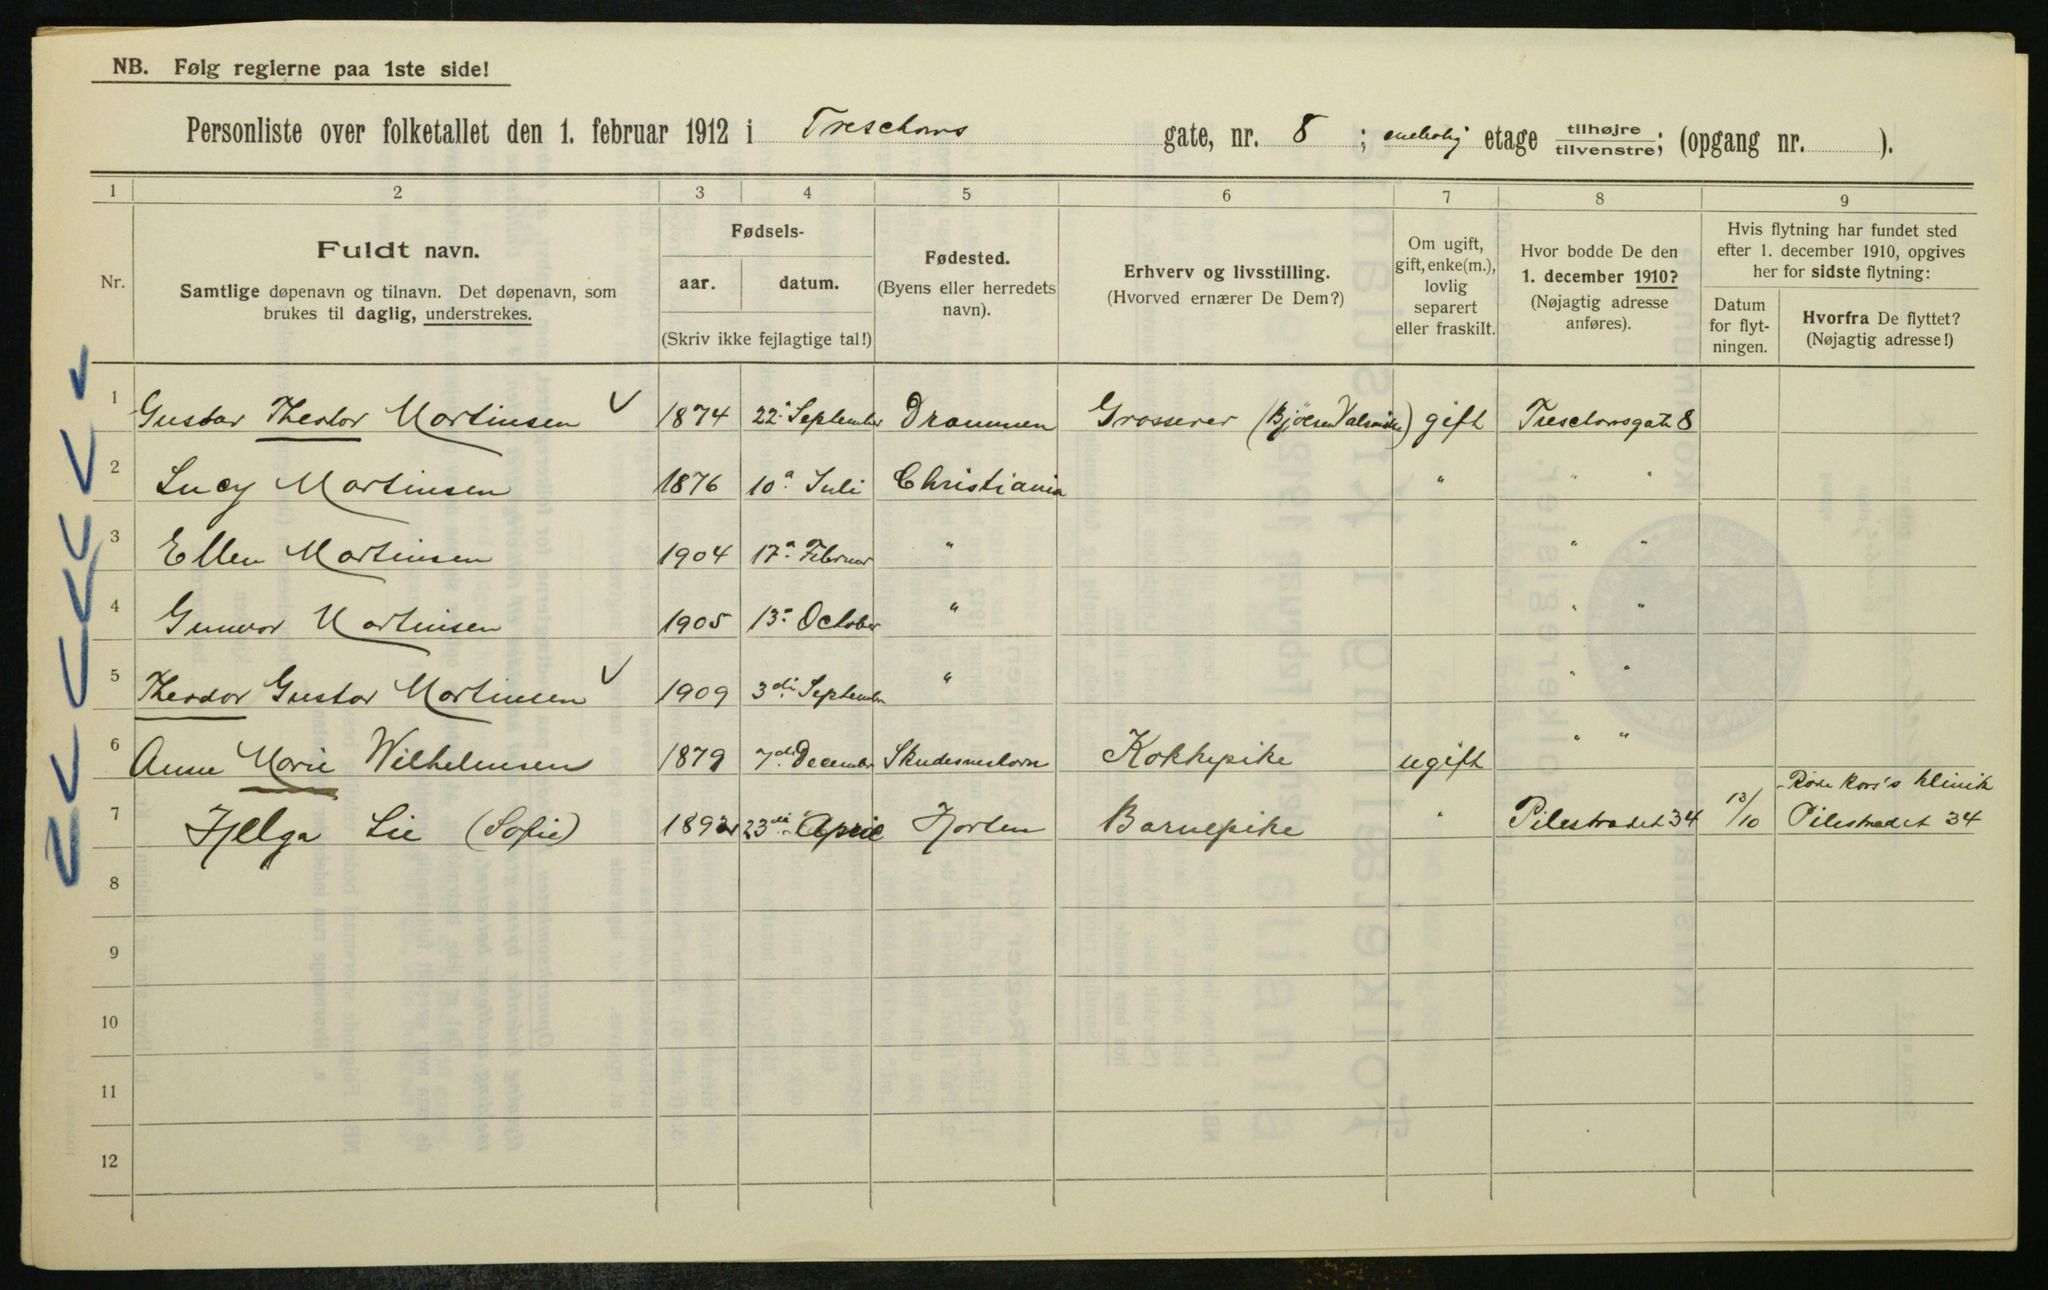 NB. Følg reglerne paa 1ste side!
Personliste over folketallet den 1. februar 1912 i Treschows gate, nr. 8 ; enebolig etage tilhøjre tilvenstre; (opgang nr. ).
1 2 3 4 5 6 7 8 9
Nr.
Fuldt navn.
Samtlige døpenavn og tilnavn. Det døpenavn, som
brukes til daglig, understrekes.
Fødsels-
aar. datum.
(Skriv ikke fejlagtige tal!)
Fødested.
(Byens eller herredets
navn).
Erhverv og livsstilling.
(Hvorved ernærer De Dem?)
Om ugift,
gift, enke(m.),
lovlig
separert
eller fraskilt.
Hvor bodde De den
1. december 1910?
(Nøjagtig adresse
anføres).
Hvis flytning har fundet sted
efter 1. december 1910, opgives
her for sidste flytning:
Datum
for flyt-
ningen.
Hvorfra De flyttet?
(Nøjagtig adresse!)
1 Gustav Theodor Martinsen 1874 22. September Drammen Grosserer ( ) gift Treschowsgate 8
2 Lucy Martinsen 1876 10. Juli Christiania " " "
3 Ellen Martinsen 1904 17. Februar " " "
4 Gunvor Martinsen 1905 13. October " " "
5 Theodor Gustav Martinsen 1909 3di September " " "
6 Anne Marie Wilhelmsen 1879 7di December Skudesneshavn Kokkepike ugift " "
Røde Kors's klinik
7 Hjelga Lie (Sofie) 23di April Horten Barnepike " Pilestrædet 34 13/10 Pilestrædet 34
8
9
10
11
12